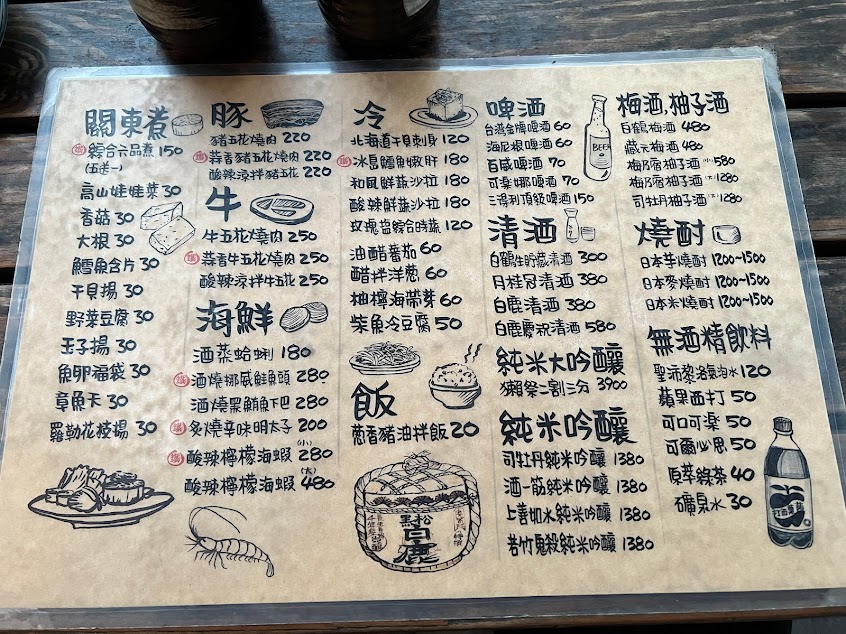 關東煮
綜合六品煮 150
(五送一)
高山娃娃菜 30
香菇 30
大根 30
鱈魚合片 30
干貝揚 30
野菜豆腐 30
玉子揚 30
魚卵福袋 30
章魚卡 30
羅勒花枝揚 30
豚
豬五花燒肉 220
蒜香豬五花燒肉 220
酸辣涼拌豬五花 220
牛
牛五花燒肉 250
蒜香牛五花燒肉 250
酸辣涼拌牛五花 250
海鮮
酒蒸蛤蜊 180
酒燒挪威鮭魚頭 280
酒燒黑鮪魚下巴 280
炙燒辛味明太子 200
酸辣檸檬海蝦 (小) 280
酸辣檸檬海蝦 (大) 480
冷
北海道干貝刺身 120
冰島鱈魚嫩肝 180
和風鮮蔬沙拉 180
酸辣鮮蔬沙拉 180
玫瑰岩綜合時蔬 120
油醋番茄 60
醋拌洋蔥 60
柚檸海帶芽 60
柴魚冷豆腐 50
飯
蔥香豬油拌飯 20
黑松
白鹿
啤酒
台灣金牌啤酒 60
海尼根啤酒 60
百威啤酒 70
可樂娜啤酒 70
三得利頂級啤酒 150
BEER
清酒
白鶴生貯藏清酒 300
月桂冠清酒 380
白鹿清酒 380
白鹿慶祝清酒 580
純米大吟釀
獺祭二割三分 3900
純米吟釀
司牡丹純米吟釀 1380
酒一筋純米吟釀 1380
上善如水純米吟釀 1380
若竹鬼殺純米吟釀 1380
梅酒,柚子酒
白鶴梅酒 480
藏元梅酒 480
梅乃宿柚子酒 (小) 580
梅乃宿柚子酒 (大) 1280
司牡丹柚子酒 1280
燒酎
日本芋燒酎 1200~1500
日本麥燒酎 1200~1500
日本米燒酎 1200~1500
無酒精飲料
聖沛黎洛氣泡水 120
蘋果西打 50
可口可樂 50
可爾必思 50
原萃綠茶 40
礦泉水 30